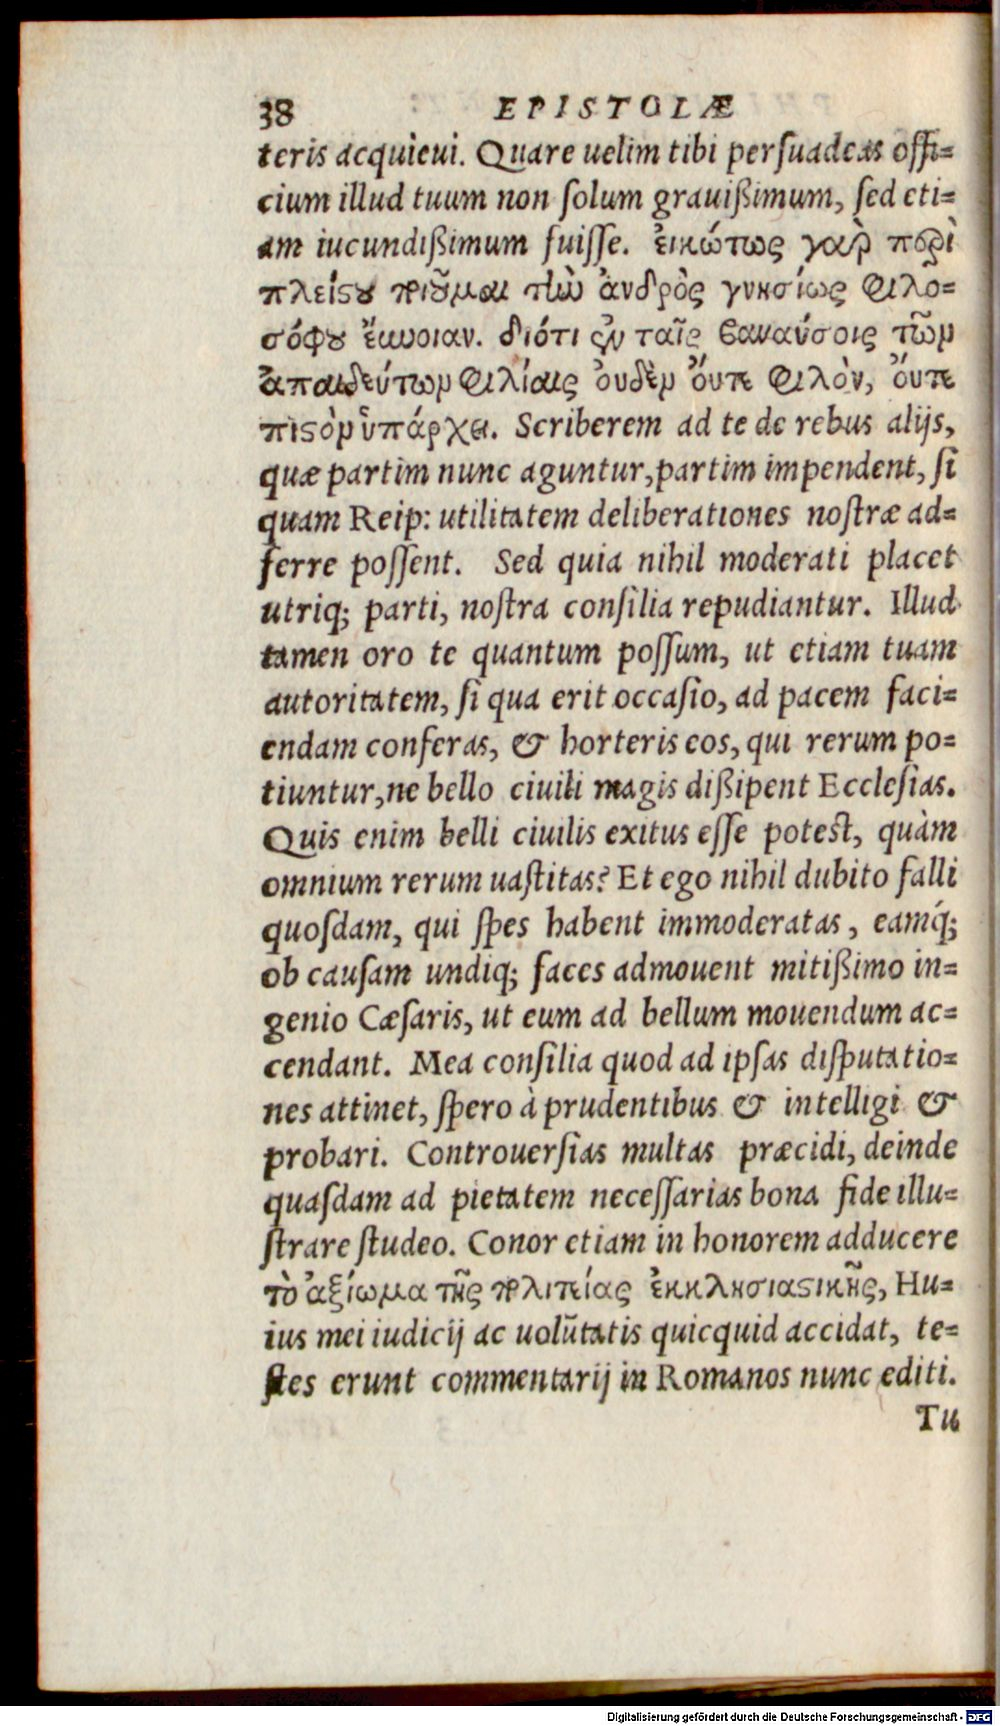 38 EPISTOLÆ
teris acquieui. Quare uelim tibi perſuadeas offi=
cium illud tuum non ſolum grauißimum, ſed eti=
am iucundißimum fuiſſe. ἐικώτως γαρ̀ περὶ
πλείϛȣ ποιȣ̃μαι τἰὼ ἀνδρὸς γνησίως φιλο=
σόφȣ ἔυνοιαν. διότι ἐν ταῖς βαναύσοις τῶμ
ἀπαιδεύτωμ φιλίαις ὀυδὲμ ὄυτε φιλὸν, ὄυτε
πιϛὸμ ὑπάρχει. Scriberem ad te de rebus alijs,
quæ partim nunc aguntur, partim impendent, ſi
quam Reip: utilitatem deliberationes noſtræ ad=
ferre poſſent. Sed quia nihil moderati placet
utriq; parti, noſtra conſilia repudiantur. Illud
tamen oro te quantum poſſum, ut etiam tuam
autoritatem, ſi qua erit occaſio, ad pacem faci=
endam conferas, & horteris eos, qui rerum po=
tiuntur, ne bello ciuili magis dißipent Eccleſias.
Quis enim belli ciuilis exitus eſſe poteſt, quàm
omnium rerum uaſtitas? Et ego nihil dubito falli
quoſdam, qui ſpes habent immoderatas, eamq́;
ob cauſam undiq; faces admouent mitißimo in=
genio Cæſaris, ut eum ad bellum mouendum ac=
cendant. Mea conſilia quod ad ipſas diſputatio=
nes attinet, ſpero à prudentibus & intelligi &
probari. Controuerſias multas præcidi, deinde
quaſdam ad pietatem neceſſarias bona fide illu=
ſtrare ſtudeo. Conor etiam in honorem adducere
τὸ ἀξίωμα τῆς πολιτείας ἐκκλησιαϛικῆς, Hu=
ius mei iudicij ac uolũtatis quicquid accidat, te=
ſtes erunt commentarij in Romanos nunc editi.
Tu
Digitalisierung gefördert durch die Deutsche Forschungsgemeinschaft - DFG